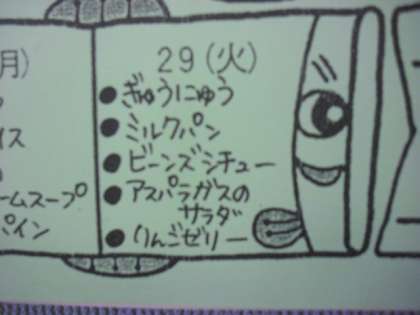 月)
イス
ームスープ
パイン
29(火)
●ぎゅうにゅう
●ミルクパン
●ビーンズシチュー
●アスパラガスの
サラダ
●りんごゼリー